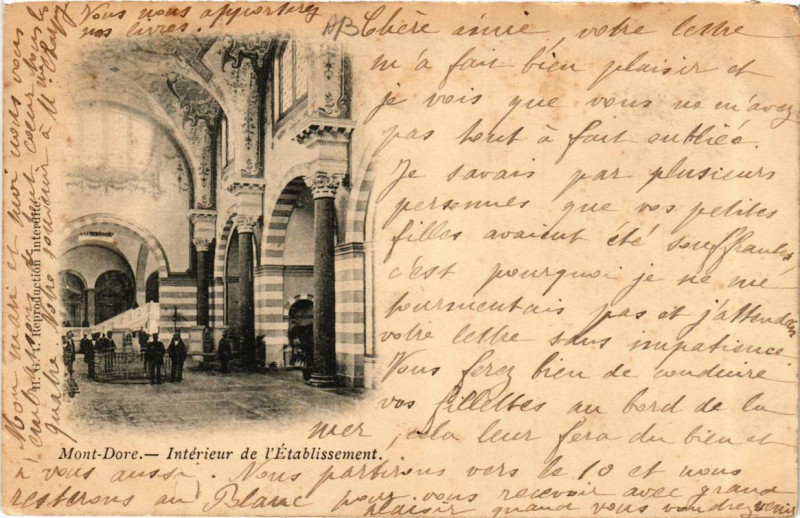 Chère amie, votre lettre
m'a fait bien plaisir et
je vois que vous ne m'avez
pas tout à fait oubliée.
Je savais par plusieurs
personnes que vos petites
filles avaient été souffrantes,
c'est pourquoi je ne me
tourmentais pas et j'attendais
votre lettre sans impatience.
Vous ferez bien de conduire
vos fillettes au bord de la
mer, cela leur fera du bien et
à vous aussi. Nous partirons vers le 10 et nous
resterons au Blanc pour vous recevoir avec grand
plaisir quand vous voudrez venir
Vous nous apporterez
nos livres.
Mon mari et moi nous vous
embrassons de tout cœur tous les
quatre. Notre souvenir à
Mont-Dore.— Intérieur de l'Établissement.
Reproduction interdite.